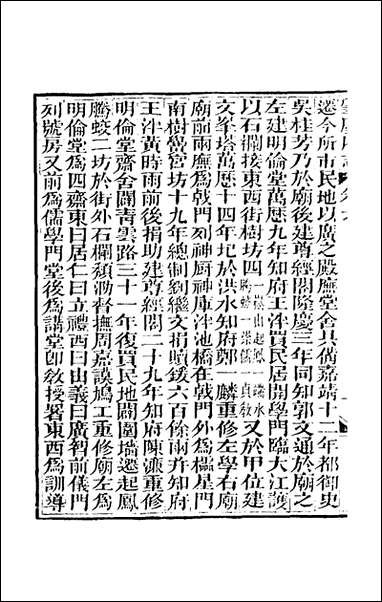 遷今所市民地以廣之殿廡堂舍具備嘉靖十二年都御史
吳桂芳乃於廟後建尊經閣隆慶三年同知郭文通於廟之
左建明倫堂萬歷九年知府王泮買民居開學門臨大江護
以石闌接東西街樹坊四一崧山起鳳一端水騰蛟一崇儒一貞敎又於甲位建
文峯塔萬歷十四年圮於洪水知府鄭一麟重修左學右廟
廟前兩廡爲戟門列神厨神庫泮池橋在戟門外爲櫺星門
南樹黌宮坊十九年總制劉繼文捐贖鍰六百餘兩幷知府
王泮黃時雨前後捐助建尊經閣二十九年知府陳濂重修
明倫堂齋舍闢靑雲路三十一年復買民地闢圍墻遷起鳳
騰蛟二坊於街外石闌頹泐督撫周嘉謨鳩工重修廟左爲
明倫堂爲四齋東曰居仁曰立禮西曰由義曰廣智前儀門
列號房又前爲儒學門堂後爲講堂卽敎授署東西爲訓導